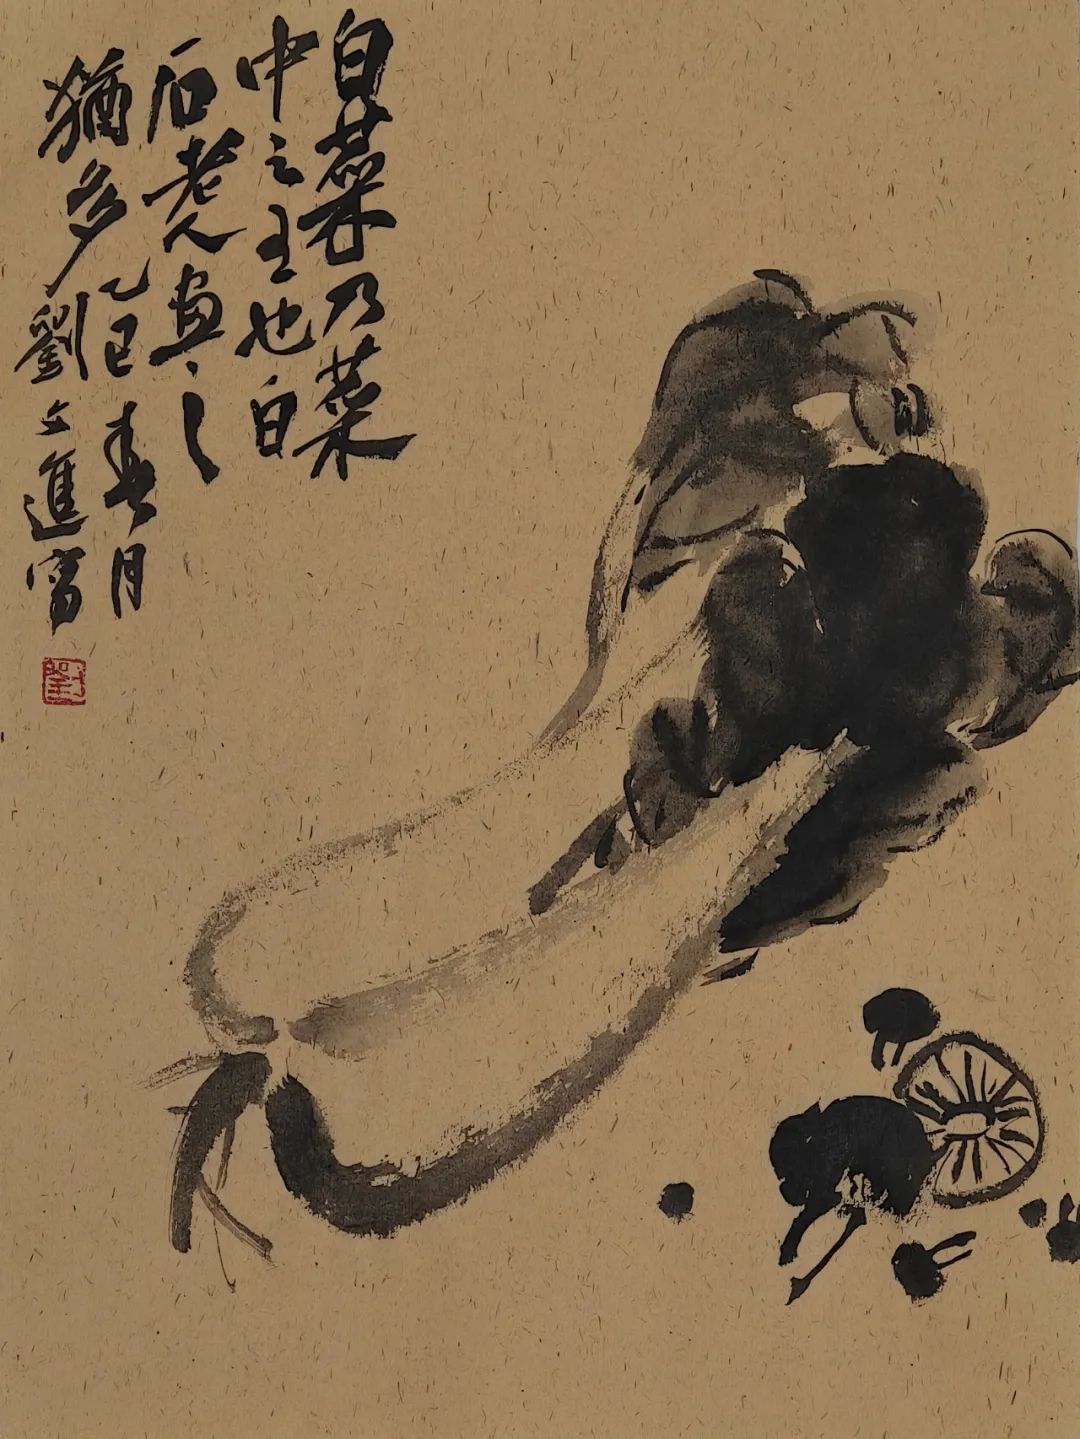 白菜乃菜
中之王也白
石老人画之
猶多
乙巳春月
劉文進寫
劉